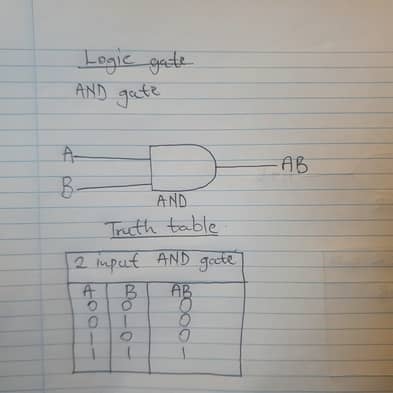 Logic gate
AND gate
A
AB
B
AND
Truth table
2 input AND gate
A B AB
0 0 0
0 1 0
1 0 0
1 1 1